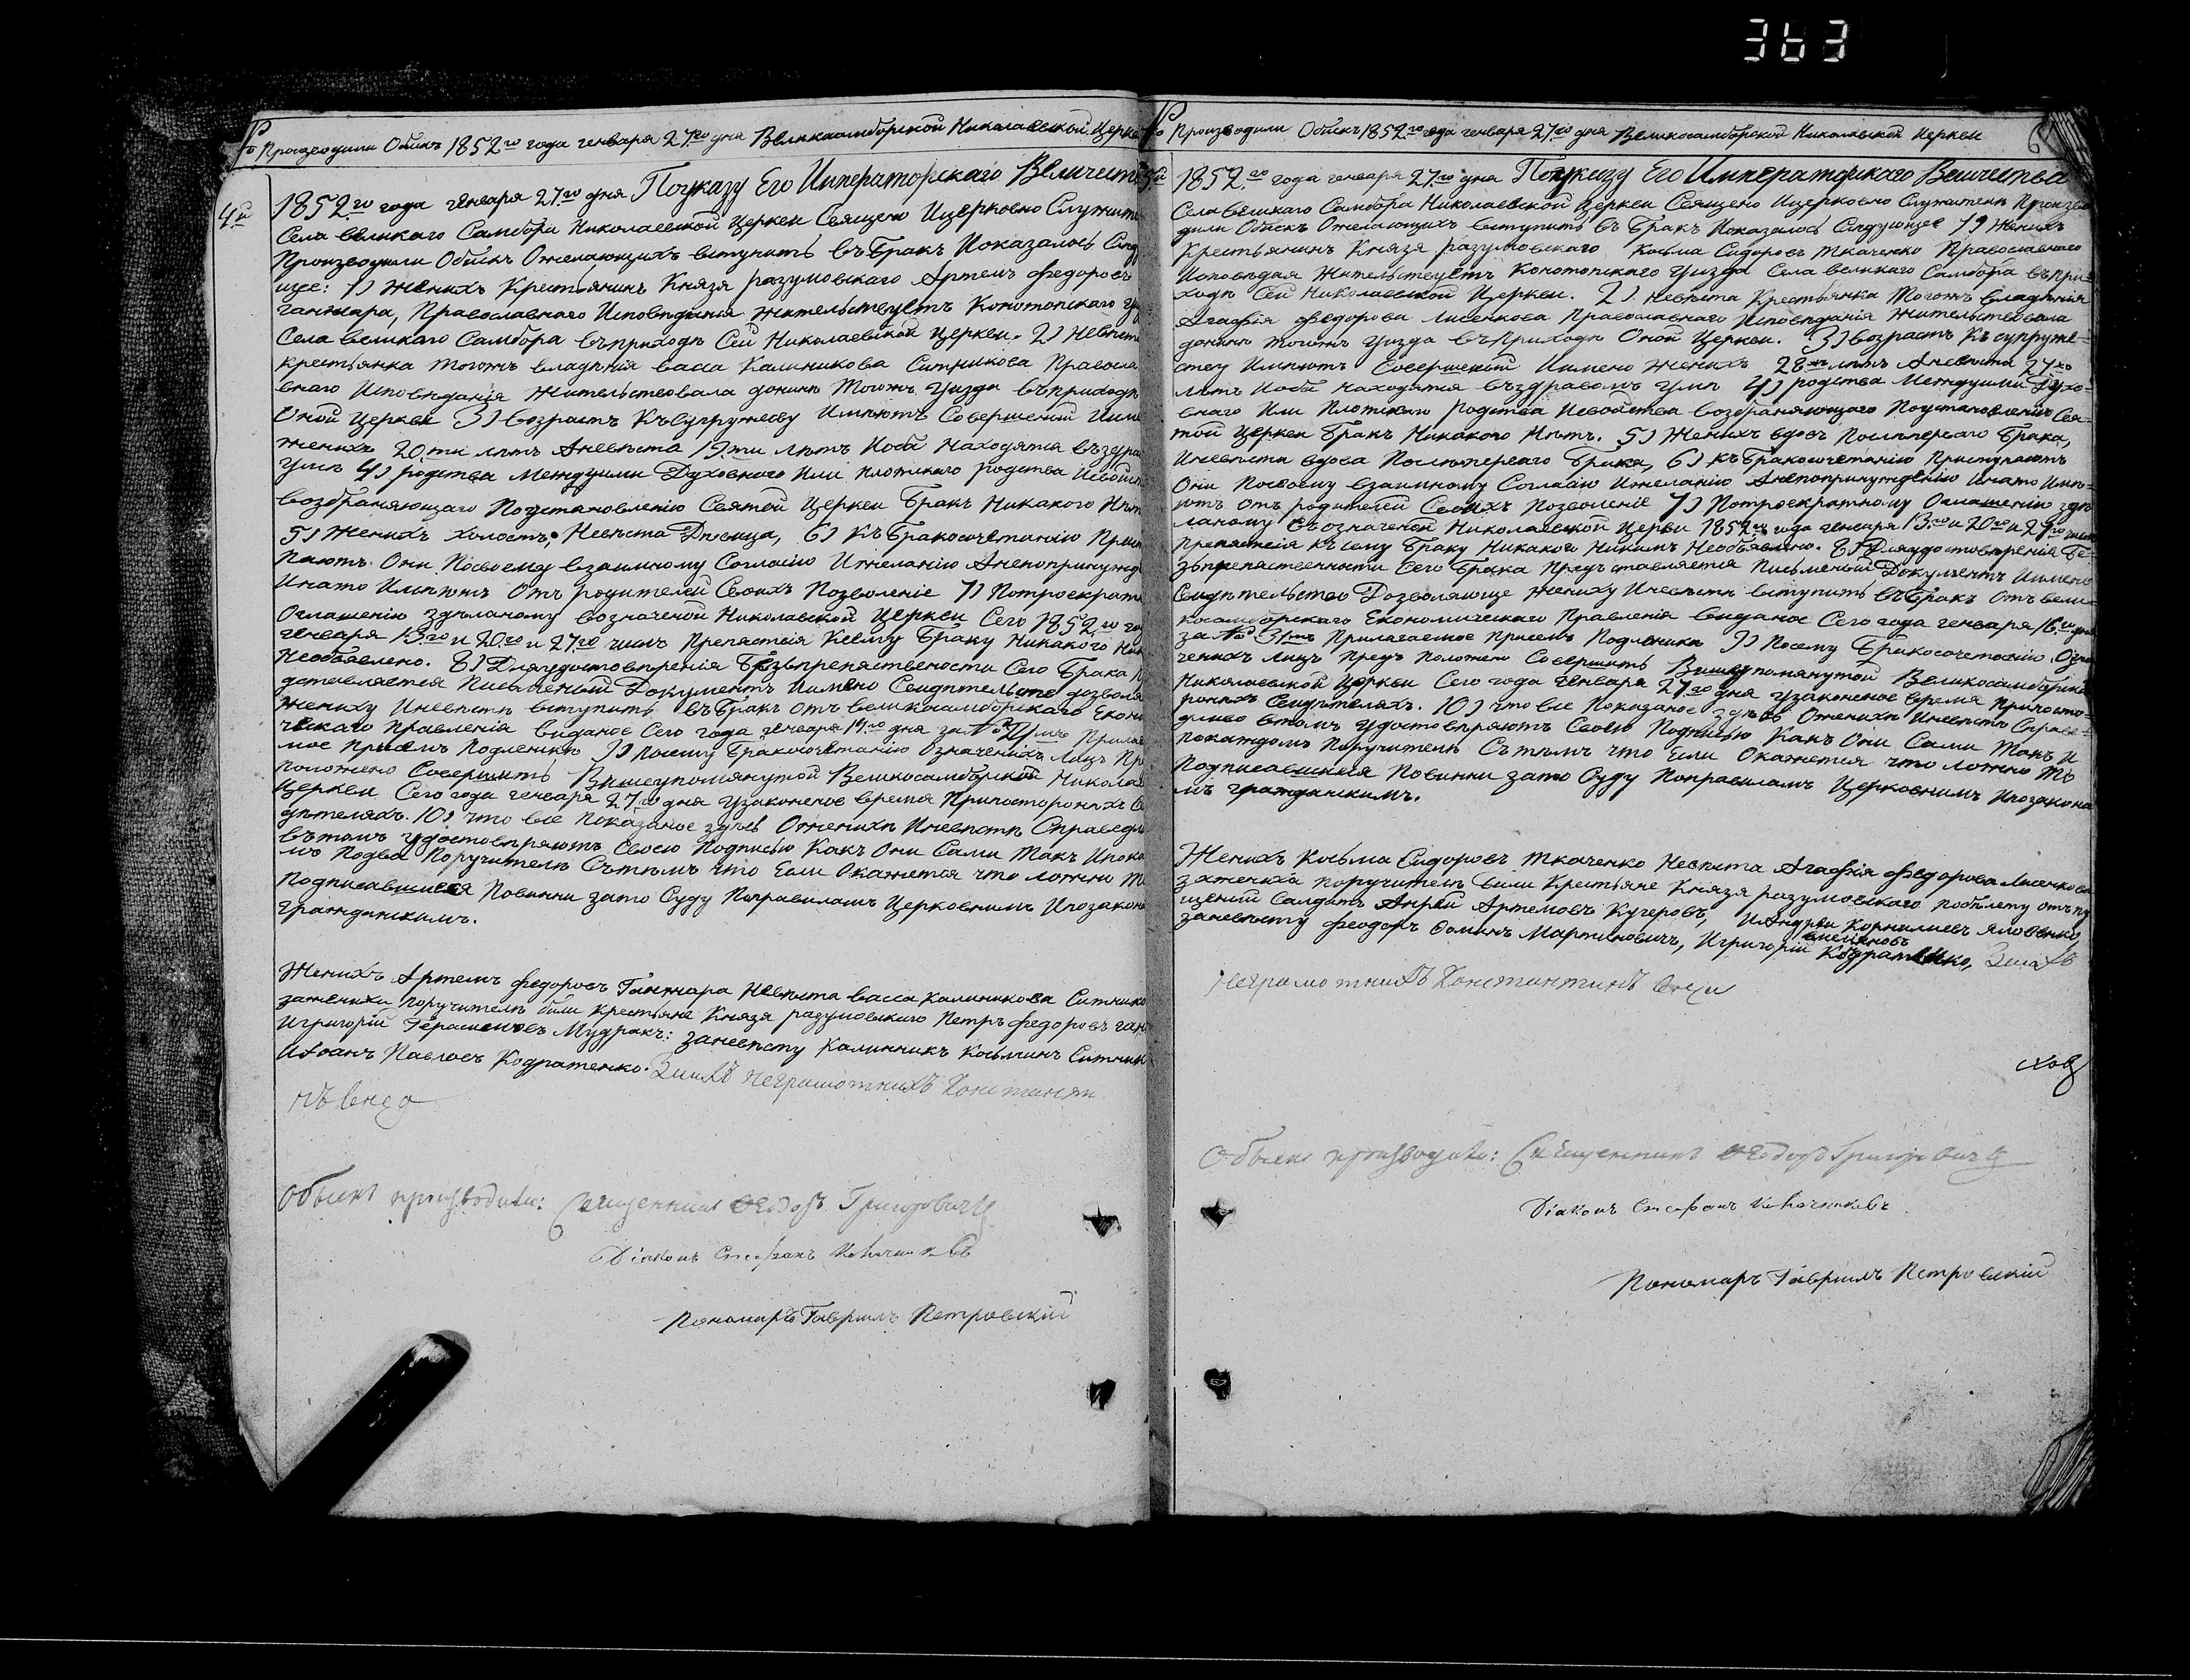 363
Производили Обискъ 1852го года генваря 27го дня Великосамборской Николаевской Церкви
4й
1852го года генваря 27го дня Поуказу Его Императорскаго Величеств
Села великаго Самбора Николаевской Церкви Священо Ицерковно Служите
Производили Обискъ Ожелающихъ вступить въ Бракъ Иоказалось Слѣду
щее: 1) Женихъ Крестьянинъ Князя разумовскаго Артемъ федоровъ
ганжара, Православнаго Исповѣданія жительствуетъ Конотопскаго уѣ
Села великаго Самбора въприходѣ Сей Николаевской Церкви. 2) Невѣста
крестьянка тогожъ владѣнія васса Калиникова Ситникова Правосла
внаго Исповѣданія жительствовала донинѣ Тогожъ Уизда въприходѣ
Оной Церкви 3) возрастъ Късупружеству Имѣютъ Совершеный Имено
женихъ 20.ти лѣтъ Аневѣста 19.ти лѣтъ Иоба Находятся въздра
Умѣ 4) родства Междуими Духовнаго Или плотскаго родства Исвойст
возбраняющаго Поустановленію Святой Церкви Бракъ Никакого Нѣт
5) Женихъ холостъ, Невѣста Дѣвица, 6) КъБракосочетанію Присту
паютъ Они Посвоему взаимному Согласію Ижеланію Анепопринужд
Инато Имѣютъ Отъ родителей Своихъ Позволеніе 7) Потроекратн
Оглашенію здѣланому возначеной Николаевской Церкви Сего 1852го го
генваря 13го и 20го и 27го чиселъ Препятствія Ксему Браку Никакого Ник
Необявлено. 8) Дляудостовѣренія Безъпрепятствености Сего Брака Пр
дставляется Письменый Документъ Имено Свидѣтельство дозволя
жениху Иневѣстѣ вступить въБракъ отъ великосамборскаго Эконо
ческаго Правленія виданое Сего года генваря 19го дня за № Прилаг
мое Присемъ Подленикѣ 9) Посему Бракосочетанію Означеныхъ лицъ Пр
положено Совершить Вишеупомянутой Великосамборской Николае
Церкви Сего года генваря 27го дня узаконеное время Припосторонихъ С
дѣтеляхъ. 10) что все Показаное здѣсъ Ожениху Иневѣстѣ Справедл
вътомъ удостовѣряютъ Своею Подписью Какъ Они Сами Такъ Ипока
мъ Подва Поручителѣ Съ тѣмъ что Если Окажется что ложно то
Подписавшиеся Повинни зато Суду Поправиламъ Церковнимъ Ипозакона
гражданскимъ.
Женихъ Артемъ федоровъ Ганжара Невѣста васса Калиникова Ситнико
зажениха поручителѣ били крестьяне Князя разумовскаго Петръ федоровъ ган
Игригорій Герасимовъ Мудракъ: заневѣсту Калинникъ Косьминъ Ситник
Иіоанъ Павловъ Кодратенко. Заихъ неграмотнихъ Константи
нъ
Обыскъ производили: Священникъ Ѳеодоръ Григоровичъ
Діаконъ Стефанъ
Пономаръ Гавриилъ Петровскій
Производили Обискъ 1852го года генваря 27го дня Великосамборской Николаевской Церкви
6
5й
1852го года генваря 27го дня Поуказу Его Императорскаго Величества
Села великаго Самбора Николаевской Церкви Священо Ицерковно Служители Произво
дили Обискъ Ожелающихъ вступить въ Бракъ Иоказалось Слѣдующее 1) Женихъ
Крестьянинъ Князя разумовскаго Косьма Сидоровъ Ткаченко Православнаго
Исповѣдая жительствуетъ Конотопскаго Уизда Села великаго Самбора въпри
ходѣ Сей Николаевской Церкви. 2) Невѣста Крестьянка Тогожъ владѣнія
Агафія федорова лисенкова Православнаго Исповѣданія жительствовала
донинѣ тогожъ уизда въПриходѣ Оной Церкви. 3) возрастъ Късупруже
ству Имѣютъ Совершеный Имено женихъ 28мъ лѣтъ Аневѣста 24ро
лѣтъ Иоба находятся въздравомъ умѣ 4) родства Междуими Духо
внаго Или Плотскаго родства Исвойства возбраняющаго Поустановленію Свя
той Церкви Бракъ Никакого Нѣтъ. 5) Женихъ вдовъ Послѣперваго Брака,
Иневѣста вдова Послѣперваго Брака, 6) къБракосочетанію Приступаютъ
Они Посвоему взаимному Согласію Ижеланію Анепопринужденію Инато Имѣ
ютъ отъ родителей Своихъ Позволеніе 7) Потроекратному Оглашенію здѣ
ланому въозначеной Николаевской Церкви 1852го года генваря 13го и 20го и 27го чиселъ
Препятствія къ сему Браку Никакого Никимъ Необъявлено. 8) Дляудостовѣренія Бе
зъпрепятствености Сего Брака Представляется Письменый Документъ Имено
Свидѣтельство Дозволяюще жениху Иневѣстѣ вступить въБракъ отъ вели
косамборскаго Економическаго Правленія виданое Сего года генваря 16го дня
за № 31мъ Прилагаемое присемъ Подленикѣ 9) Посему Бракосочетанію Озна
ченихъ лицъ Предъ положено Совершить Вишеупомянутой Великосамборской
Николаевской Церкви Сего года генваря 27го дня узаконеное время Припосто
ронихъ Свидѣтеляхъ. 10) что все Показаное здѣсъ Оженихѣ Иневѣстѣ Справе
дливо втомъ удостовѣряютъ Своею Подписью Какъ Они Сами Такъ И
покаждомъ Поручителѣ Съ тѣмъ что Если Окажется что ложно то
Подписавшиися Повинни зато Суду Поправиламъ Церковнимъ Ипозакона
мъ гражданскимъ.
Женихъ Косьма Сидоровъ Ткаченко Невѣста Агафія федорова лисенкова
зажениха Поручителѣ били Крестьяне Князя разумовскаго побилету отъпу
щеній Салдатъ Андрей Артемовъ Кучеровъ, Иандрей Корнилиевъ Яловенко,
заневѣсту феодоръ Фоминъ Мартиновичъ, Игригорій емелияновъ Кодратенко, Заихъ
Неграмотнихъ Константинъ
Обыскъ производили: Священникъ Ѳеодоръ Григоровичъ
Діаконъ Стефанъ
Пономаръ Гавриилъ Петровскій